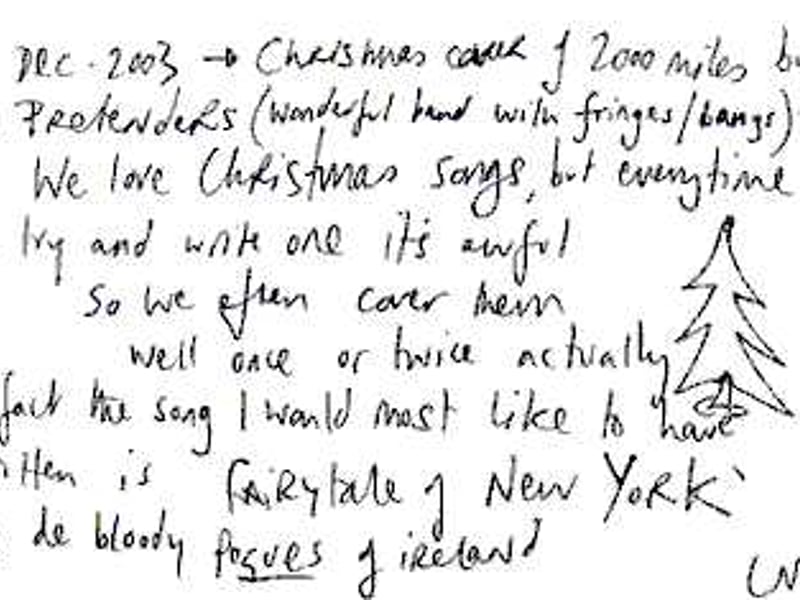 Dec. 2003 → Christmas cover of 2000 miles b
Pretenders (wonderful band with fringes/bangs)
We love Christmas songs, but everytime
try and write one it's awful
so we often cover them
well once or twice actually
fact the song I would most like to have
itten is fairytale of New York
de bloody Pogues of ireland